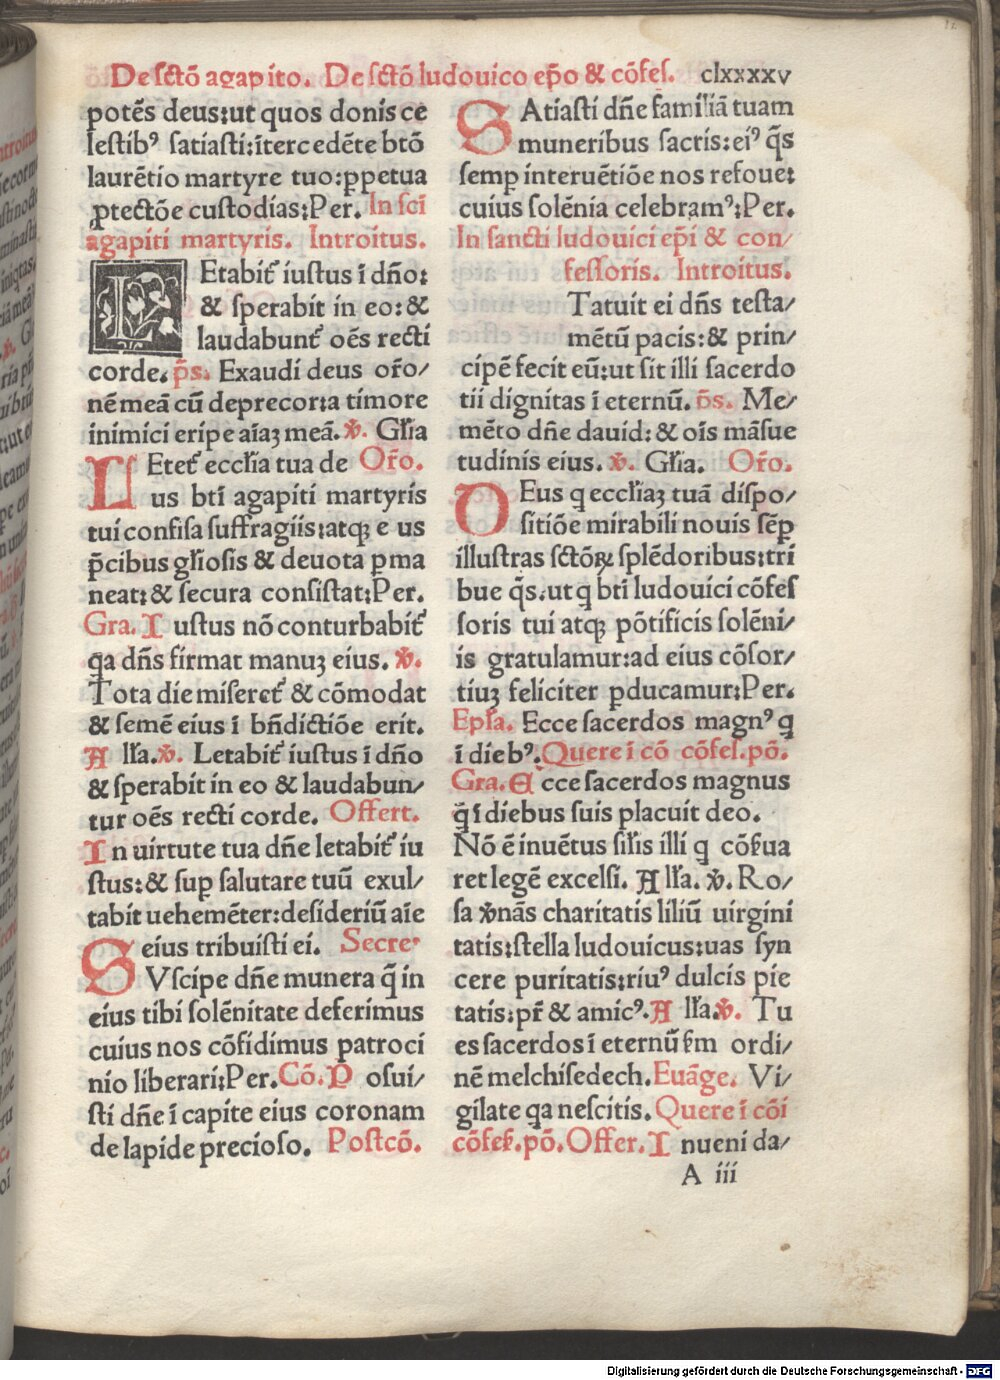 De sctō agapito. De sctō ludouico ep̄o & cōfes. clxxxxv
potēs deus:ut quos donis ce
lestibꝰ satiasti:ītercedēte btō
laurētio martyre tuo:ꝑpetua
ꝓtectōe custodias:Per. In sci
agapiti martyris. Introitus.
LEtabit᷑ iustus ī dn̄o:
& sperabit in eo:&
laudabunt᷑ oēs recti
corde. p̄s. Exaudi deus or̄o/
nē meā cū deprecor:a timore
inimici eripe aīaꝫ meā. ℣. Gl̄ia
LEtet᷑ eccl̄ia tua de Or̄o.
us bt̄i agapiti martyris
tui confisa suffragiis:atqꝫ e us
p̄cibus gl̄iosis & deuota ꝑma
neat:& secura consistat:Per.
Gra. Iustus nō conturbabit᷑
qa dn̄s firmat manuꝫ eius. ℣.
Tota die miseret᷑ & cōmodat
& semē eius ī bn̄dictiōe erit.
All̄a. ℣. Letabit᷑ iustus ī dn̄o
& sperabit in eo & laudabun/
tur oēs recti corde. Offert.
In uirtute tua dn̄e letabit᷑ iu
stus:& suꝑ salutare tuū exul/
tabit uehemēter:desideriū aīe
eius tribuisti ei. Secre
SVscipe dn̄e munera q̄ in
eius tibi solēnitate deferimus
cuius nos cōfidimus patroci
nio liberari:Per. Cō. Posui/
sti dn̄e ī capite eius coronam
de lapide precioso. Postcō.
SAtiasti dn̄e familiā tuam
muneribus sacris:eiꝰ q̄s
semꝑ interuētiōe nos refoue:
cuius solēnia celebramꝰ:Per.
In sancti ludouici ep̄i & con/
fessoris. Introitus.
Tatuit ei dn̄s testa/
mētū pacis:& prin/
cipē fecit eū:ut sit illi sacerdo
tii dignitas ī eternū. p̄s. Me/
mēto dn̄e dauid:& oīs māsue
tudinis eius. ℣. Gl̄ia. Or̄o.
DEus q eccl̄iaꝫ tuā dispo/
sitiōe mirabili nouis sēꝑ
illustras sctōꝝ splēdoribus:tri
bue q̄s.ut q bt̄i ludouici cōfes
soris tui atqꝫ pōtificis solēni/
is gratulamur:ad eius cōsor/
tiuꝫ feliciter ꝑducamur:Per.
Epl̄a. Ecce sacerdos magnꝰ q
ī diebꝰ. Quere ī cō cōfes.pō.
Gra. Ecce sacerdos magnus
q̄ ī diebus suis placuit deo.
Nō ē inuētus sil̄is illi q cōẜua
ret legē excelsi. All̄a. ℣. Ro/
sa ℣nās charitatis liliū uirgini
tatis:stella ludouicus:uas syn
cere puritatis:riuꝰ dulcis pie
tatis:pr̄ & amicꝰ. All̄a. ℣. Tu
es sacerdos ī eternū ẜm ordi/
nē melchisedech. Euāge. Vi/
gilate qa nescitis. Quere ī cōi
cōfeẜ.pō. Offer. Inueni da/
A iii
Digitalisierung gefördert durch die Deutsche Forschungsgemeinschaft - DFG